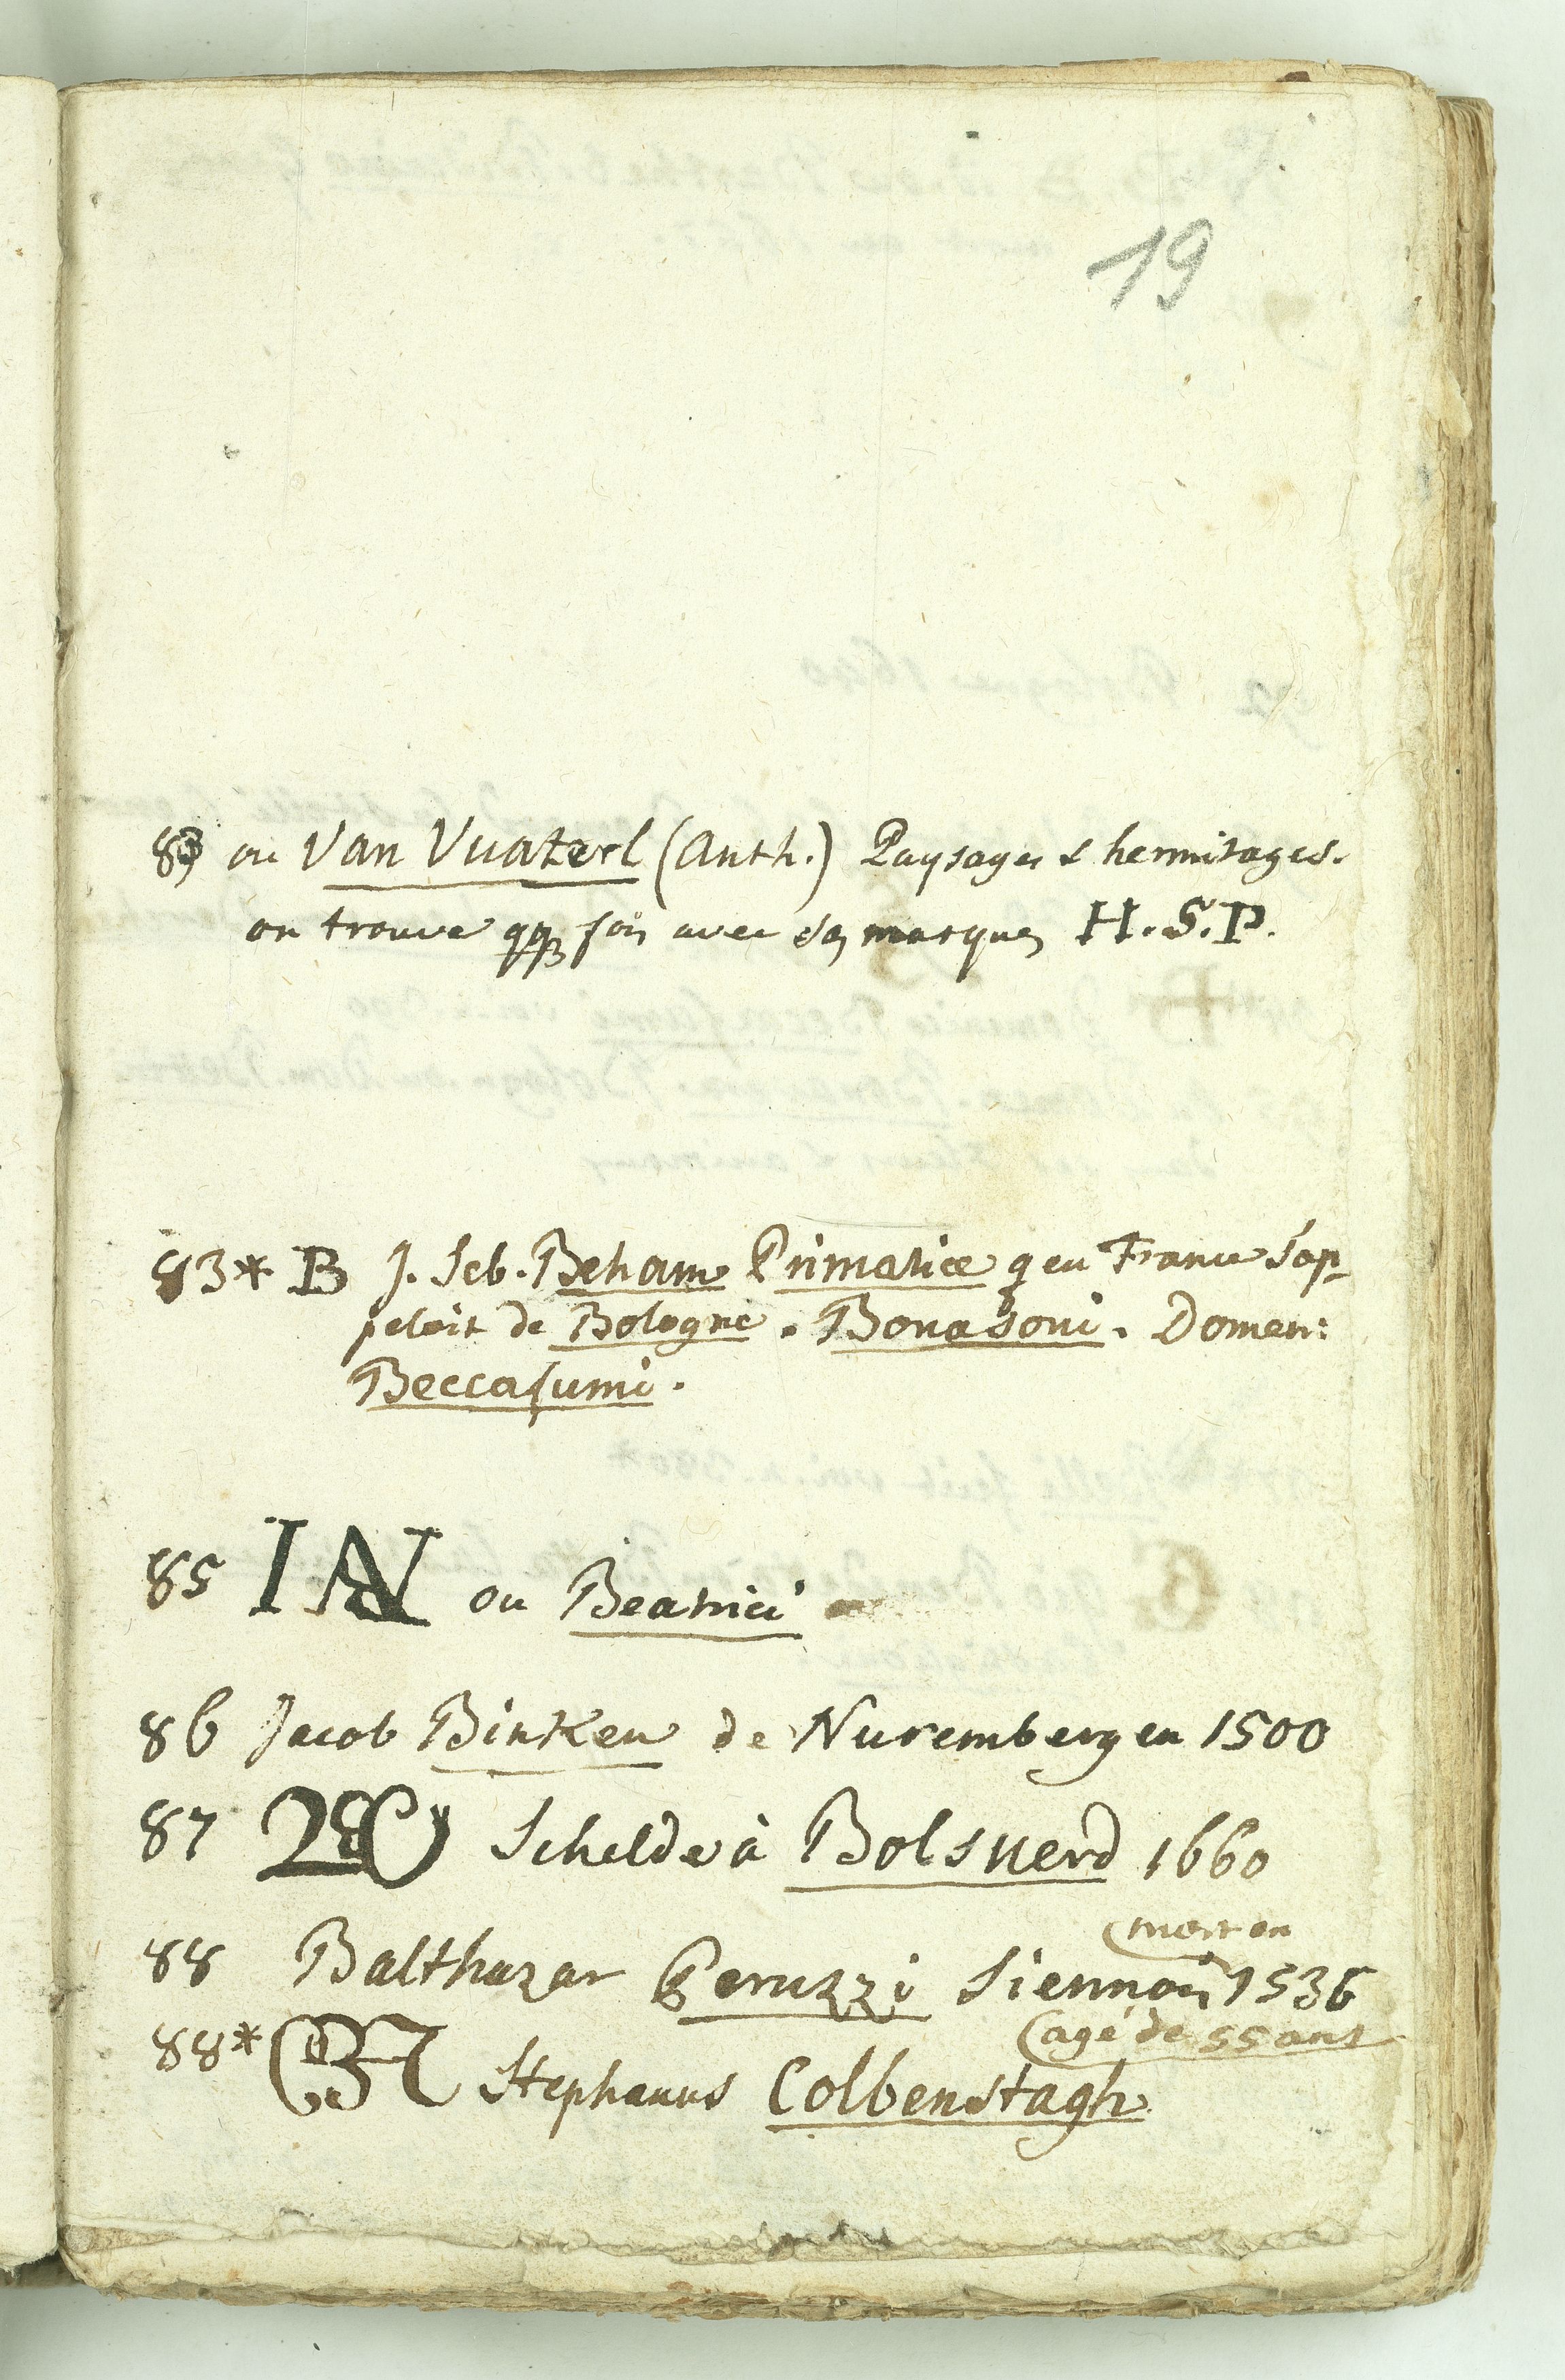 19
83 ou Van Vuaterl (Anth.) Paysages & hermitages.
on trouve qq fois avec ses marques H.S.P.
83* B J. Seb. Beham Primatice q en France s'ap-
peloit de Bologne. Bonasoni. Domen:
Beccafumi.
85 ou Beatrici
86 Jacob Binken de Nuremberg en 1500
87 Schelde à Bolsuerd 1660
88 Balthazar Peruzzi Siennois (mort en 1536
(agé de 55 ans
88* Stephanus Colbenstagh